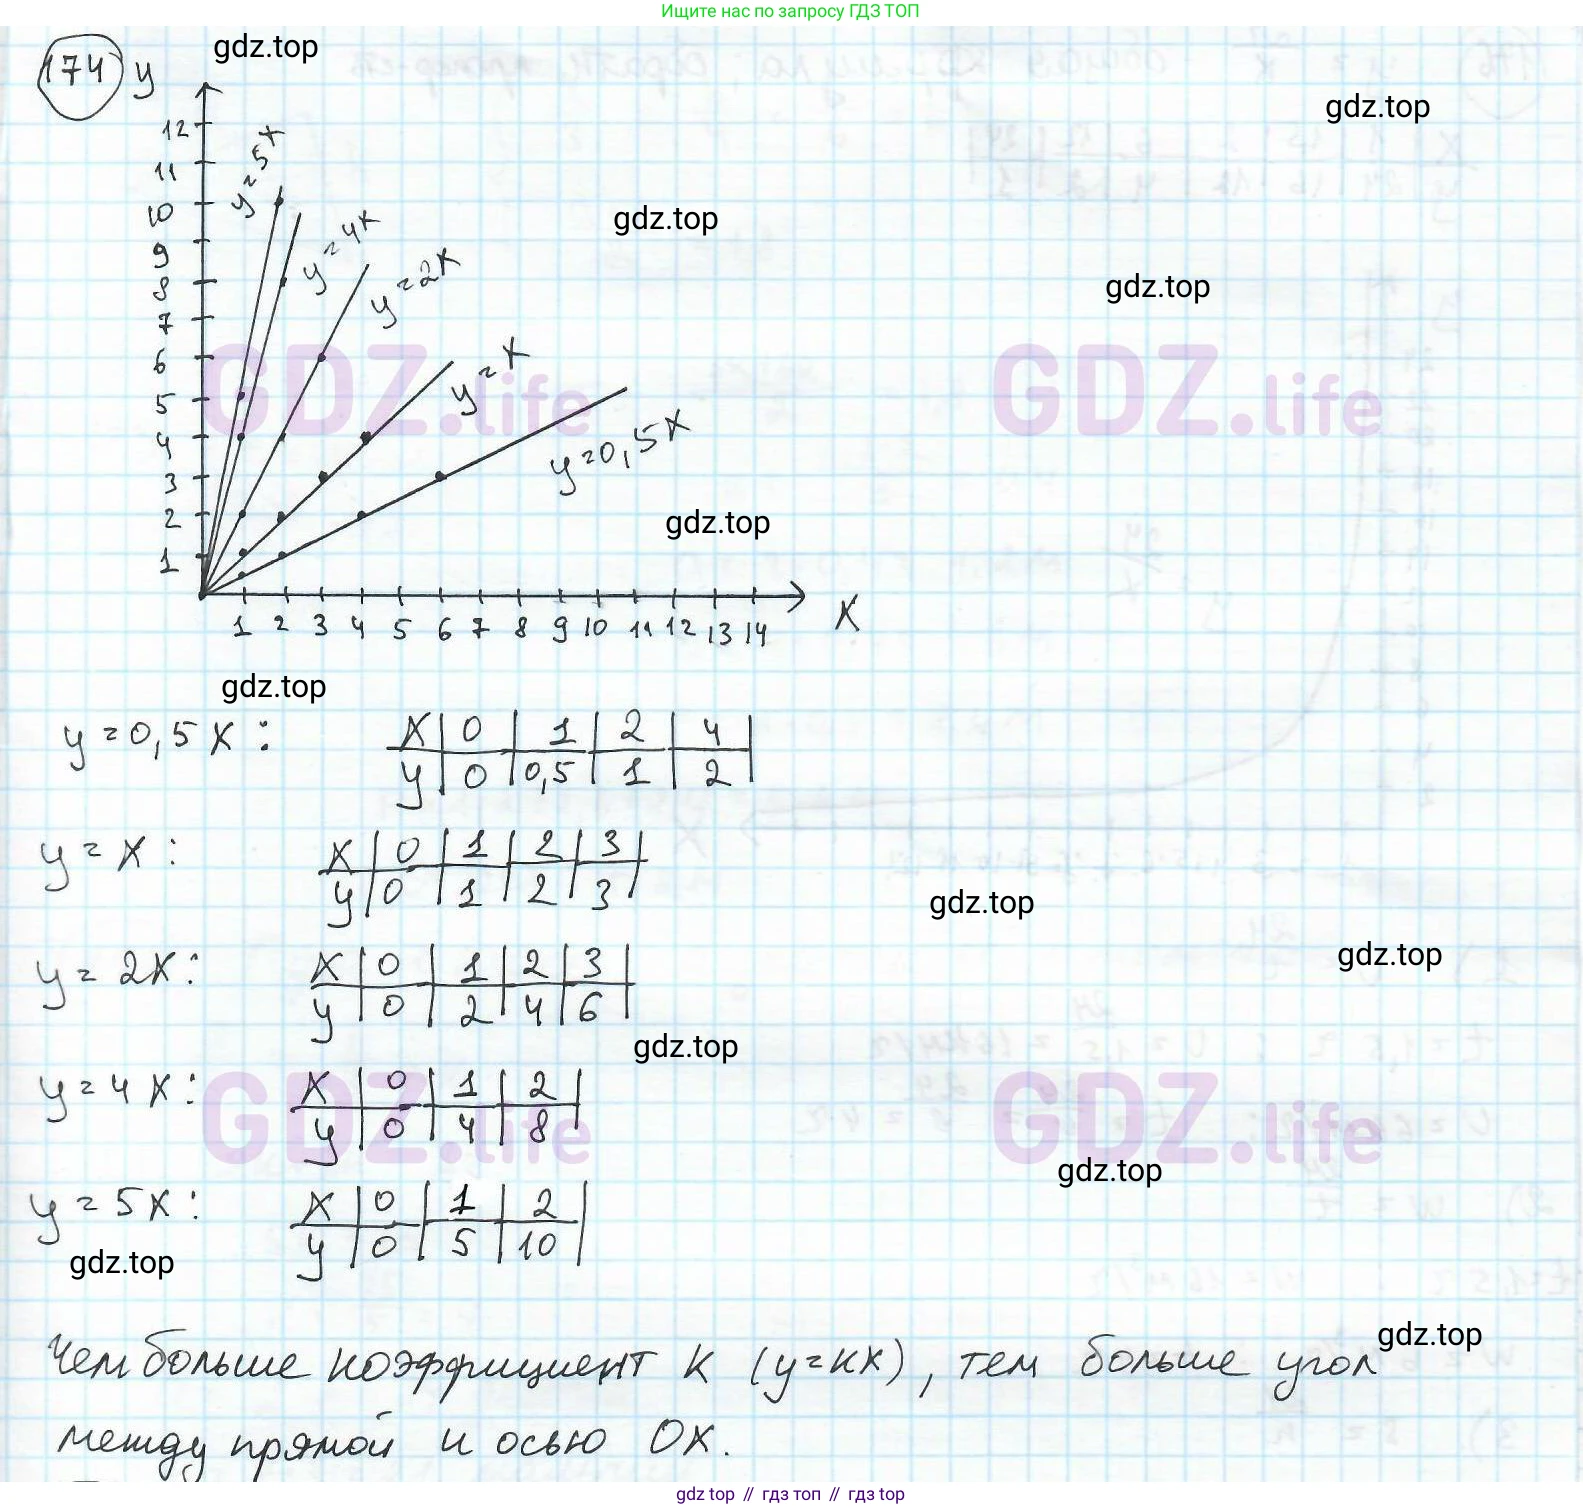 Ищите нас по запросу ГДЗ ТОП
174
gdz.top
y
gdz.top
12
11
10
9
8
7
6
5
4
3
2
1
y=5x
y=4x
y=2x
y=x
y=0,5x
gdz.top
gdz.top
GDZ.life
GDZ.life
gdz.top
1 2 3 4 5 6 7 8 9 10 11 12 13 14
x
gdz.top
y=0,5x: x 0 1 2 4
y 0 0,5 1 2
y=x: x 0 1 2 3
y 0 1 2 3
gdz.top
gdz.top
y=2x: x 0 1 2 3
y 0 2 4 6
gdz.top
y=4x: x 0 1 2
y 0 4 8
GDZ.life
GDZ.life
gdz.top
y=5x: x 0 1 2
y 0 5 10
gdz.top
gdz.top
Чем больше коэффициент К (y=кx), тем больше угол
между прямой и осью ОХ.
gdz top // гдз топ // гдз top